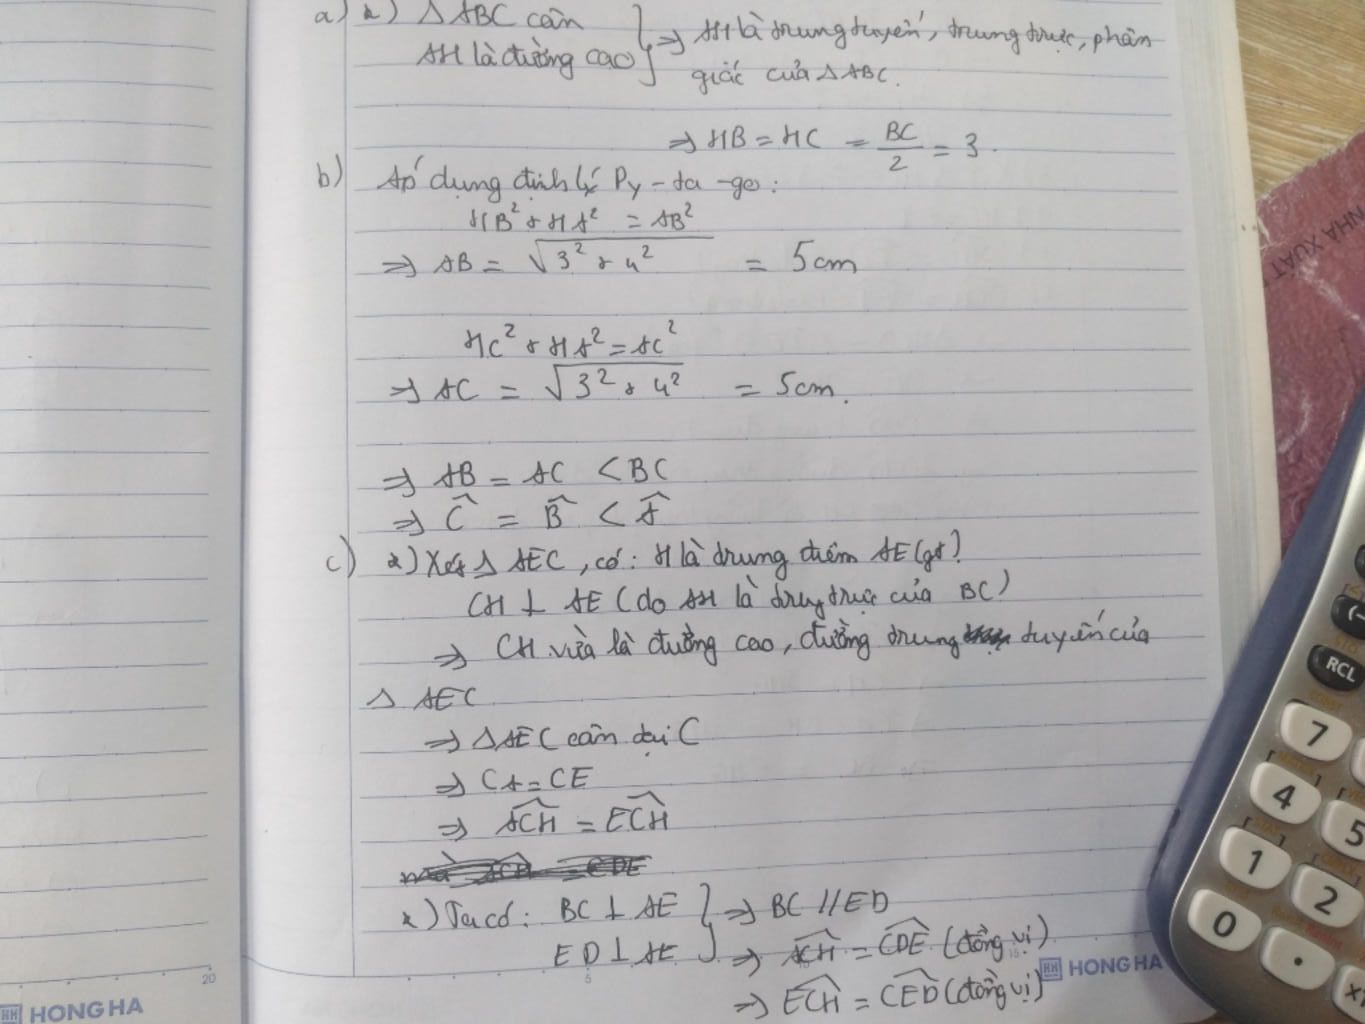 a) *) Δ ABC cân
AH là đường cao } ⇒ AH là trung tuyến, trung trực, phân
giác của Δ ABC.
⇒ HB = HC = BC/2 = 3.
b) Áp dụng định lý Py-ta-go:
HB² + HA² = AB²
⇒ AB = √(3² + 4²) = 5cm
HC² + HA² = AC²
⇒ AC = √(3² + 4²) = 5cm.
⇒ AB = AC < BC
⇒ Ĉ = B̂ < Â
c) *) Xét Δ AEC, có: H là trung điểm AE (gt)
CH ⊥ AE (do AH là trung trực của BC)
⇒ CH vừa là đường cao, đường trung tuyến của
Δ AEC
⇒ Δ AEC cân tại C
⇒ CA = CE
⇒ ACH^ = ECH^
*) Ta có: BC ⊥ AE
ED ⊥ AE } ⇒ BC // ED
⇒ ACH^ = CDE^ (đồng vị)
⇒ ECH^ = CED^ (đồng vị)
HONG HA
HONG HA
20
5
10
15
NHÀ XUẤT
RCL
7
4
5
1
2
0
.
(-